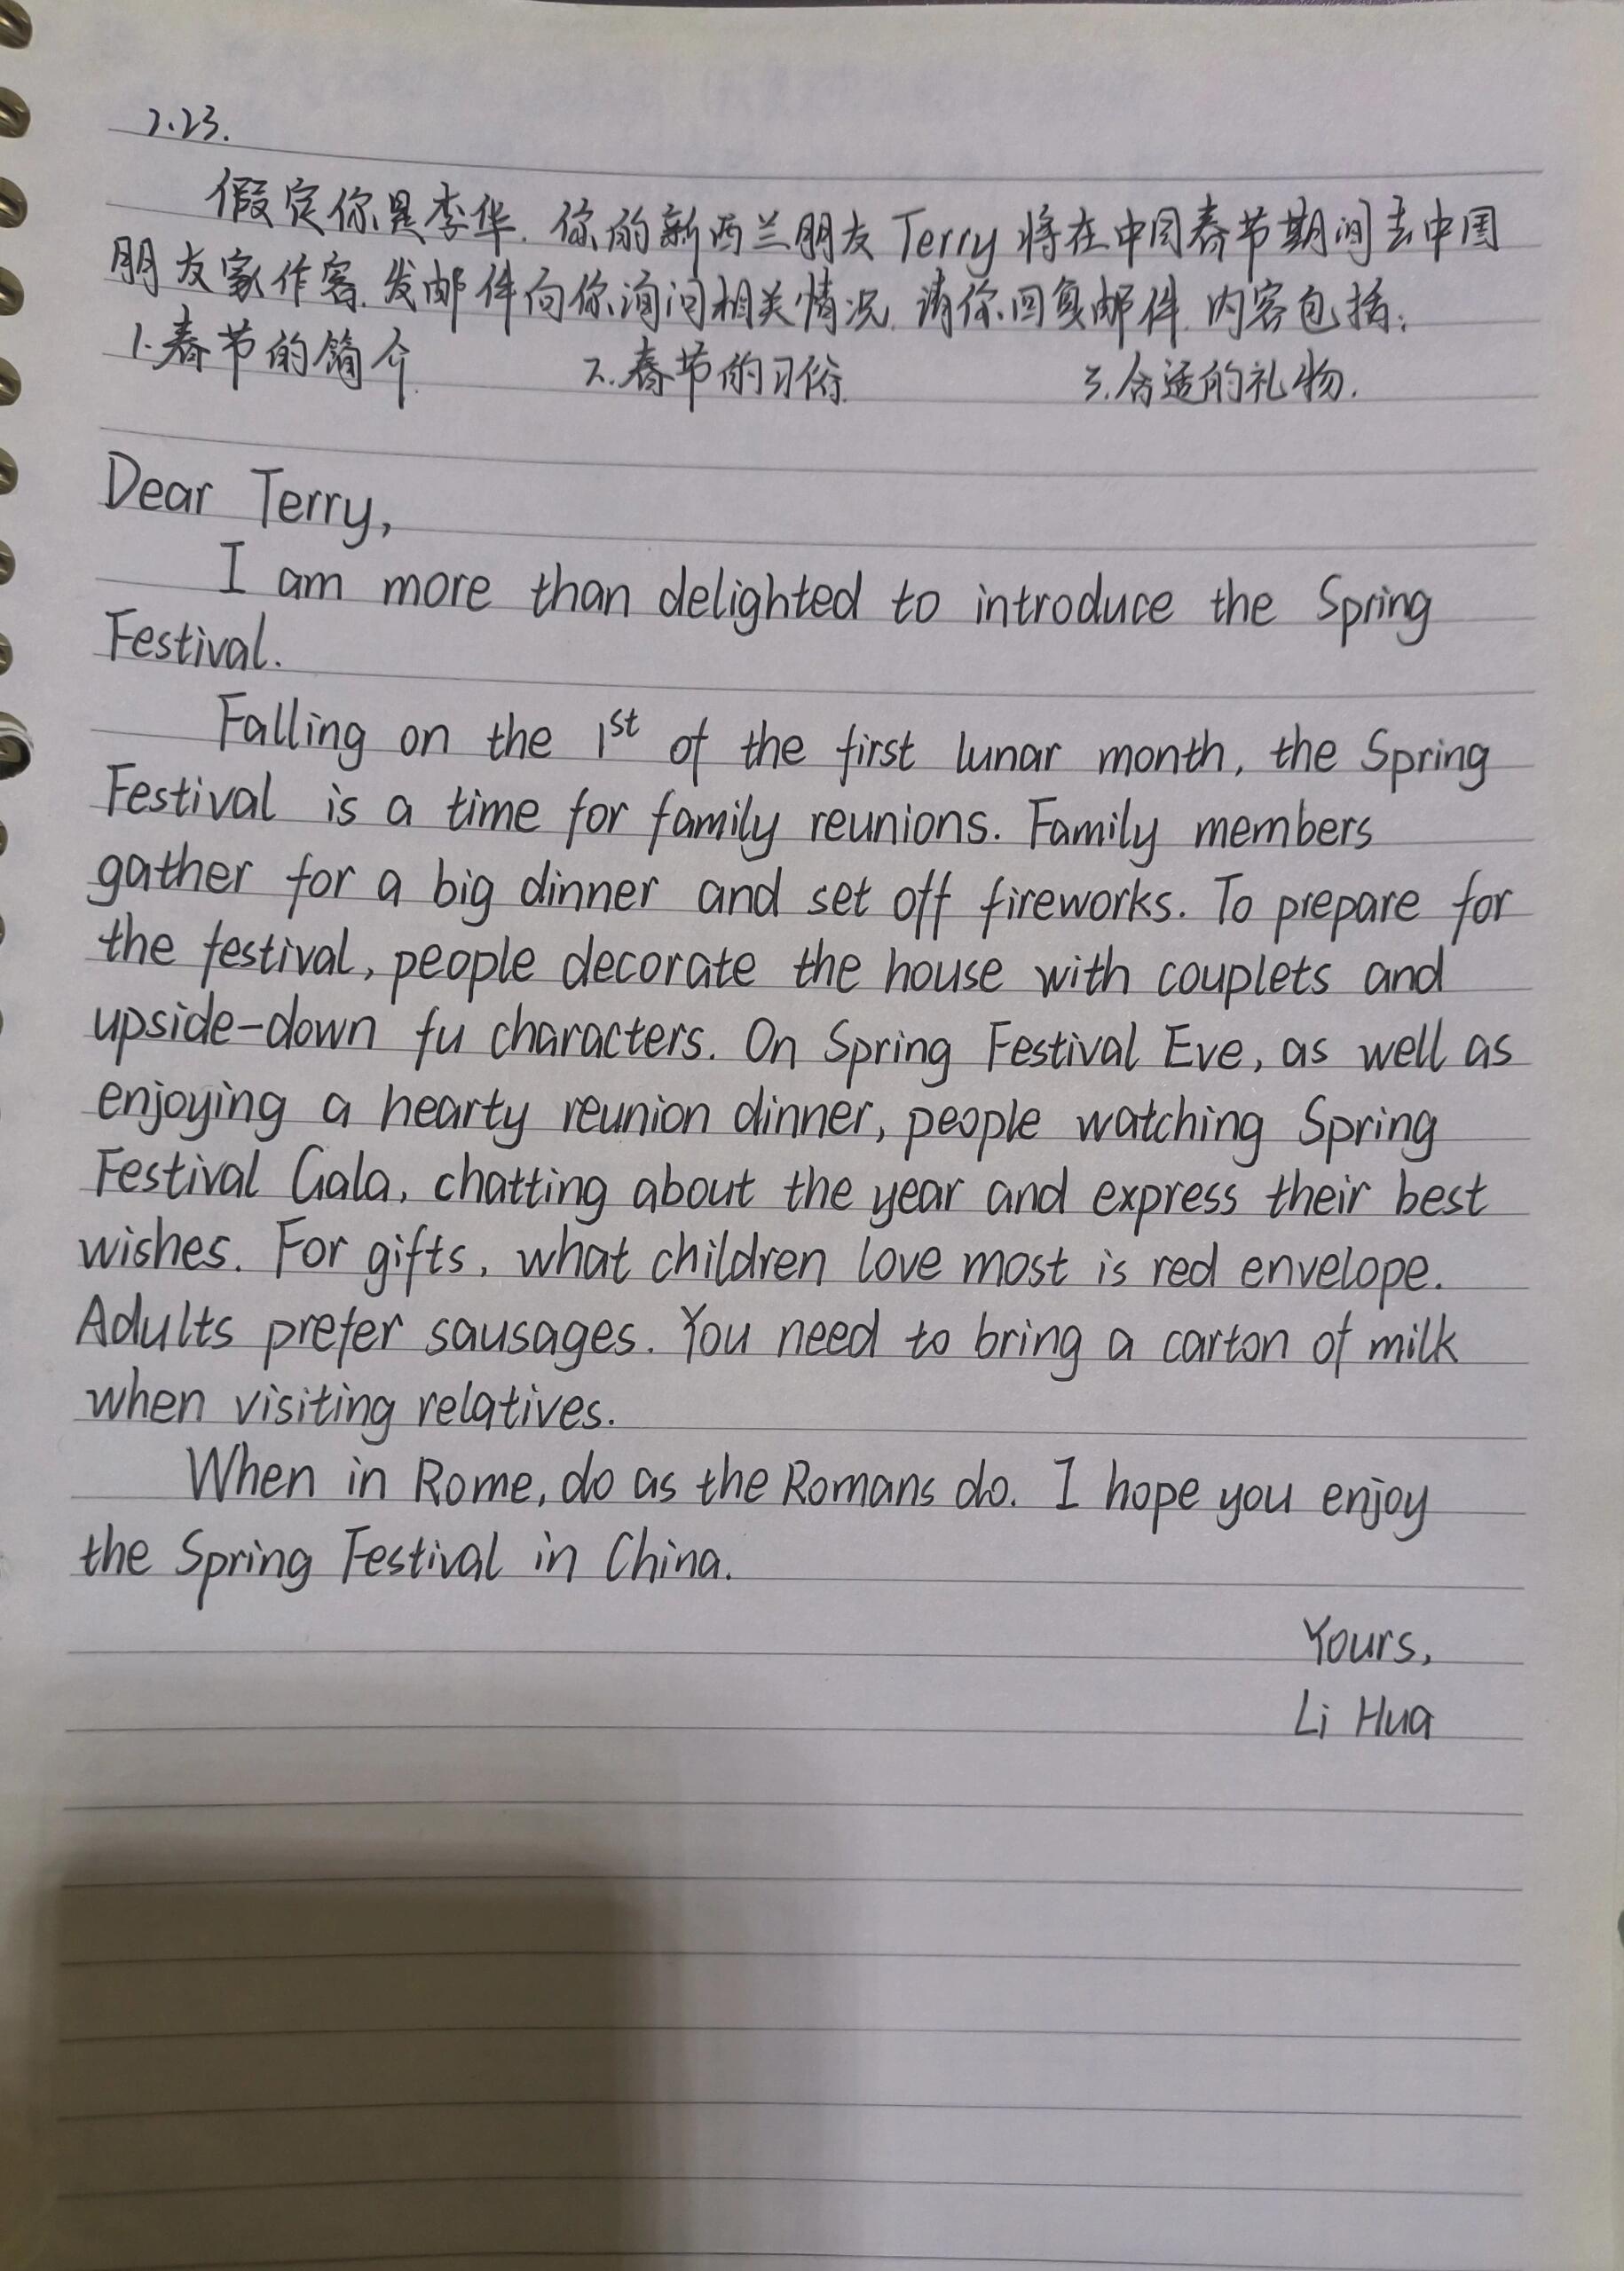 2.23.
假定你是李华.你的新西兰朋友Terry将在中国春节期间去中国
朋友家作客.发邮件向你询问相关情况.请你回复邮件.内容包括:
1.春节的简介. 2.春节的习俗. 3.合适的礼物.
Dear Terry,
I am more than delighted to introduce the Spring
Festival.
Falling on the 1st of the first lunar month, the Spring
Festival is a time for family reunions. Family members
gather for a big dinner and set off fireworks. To prepare for
the festival, people decorate the house with couplets and
upside-down fu characters. On Spring Festival Eve, as well as
enjoying a hearty reunion dinner, people watching Spring
Festival Gala, chatting about the year and express their best
wishes. For gifts, what children love most is red envelope.
Adults prefer sausages. You need to bring a carton of milk
when visiting relatives.
When in Rome, do as the Romans do. I hope you enjoy
the Spring Festival in China.
Yours,
Li Hua